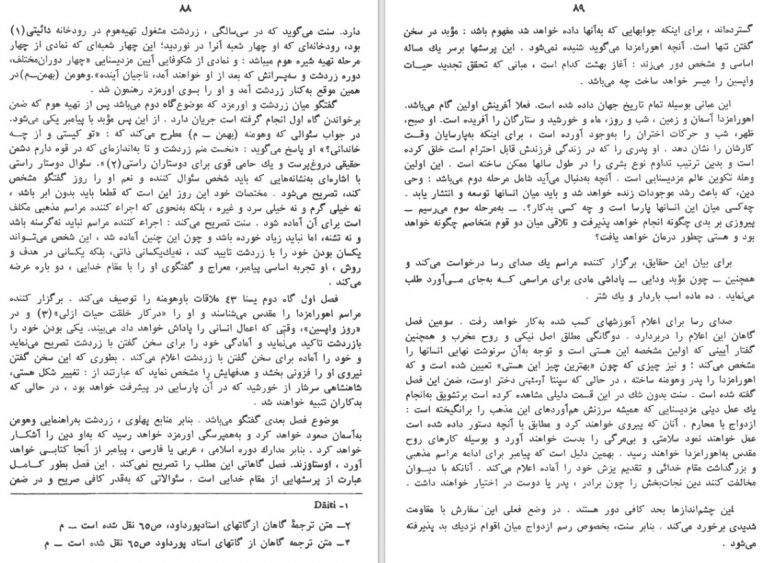 ۸۸
دارد. سنت میگوید که در سیسالگی ، زردشت مشغول تهیههوم در رودخانه دائیتی(۱)
بود، رودخانهای که او چهار شعبه آنرا در نوردید؛ این چهار شعبهای که نمادی از چهار
مرحله تهیه شیره هوم میباشد : و نمادی از شکوفایی آیین مزدیسنایی «چهار دورانمختلف،
دوره زردشت و سهپسرانش که بعد از او خواهند آمد، ناجیان آینده».وهومن (بهمن_م)در
همین موقع بهکنار زردشت آمد و او را بسوی اورمزد رهنمون شد .
گفتگو میان زردشت و اورمزد که موضوعگاه دوم میباشد پس از تهیه هوم که ضمن
برخواندن گاه اول انجام گرفته است جریان دارد . از این پس مؤبد با پیامبر یکی میشود.
در جواب سئوالی که وهومنه (بهمن _ م) مطرح میکند که : «تو کیستی و از چـه
خاندانی؟» او پاسخ میگوید : «نخست منم زردشت و تا بهاندازهای که در قوه دارم دشمن
حقیقی دروغپرست و یك حامی قوی برای دوستاران راستی(۲)». سئوال دوستار راستی
با اشارهای بهنشانههایی که باید شخص سؤال کننده و نعم او را روز گفتگو مشخص
کند، تصریح میشود . مختصات خود این روز این است که قطعا باید بدون ابر باشد ،
نه خیلی گرم و نه خیلی سرد و غیره ، بلکه بهنحوی که اجراء کننده مراسم مذهبی مکلف
است برای آن آماده شود . سنت تصریح میکند : اجراء کننده مراسم نباید نهگرسنه باشد
و نه تشنه، اما نباید زیاد خورده باشد و چون این چنین آماده شد ، این شخص میتواند
یکسان بودن خود را با زردشت تایید کند ، نهیكیکسانی ذاتی، بلکه یکسانی در هدف و
روش ، او تجربه اساسی پیامبر، معراج و گفتگوی او را با مقام خدایی ، دو باره عرضه
میکند .
فصل اول گاه دوم یسنا ۴۳ ملاقات باوهومنه را توصیف میکند . برگزار کننده
مراسم اهورامزدا را مقدس میشناسند و او را «درکار خلقت حیات ازلی»(۳) و در
«روز واپسین»، وقتی که اعمال انسانی را پاداش خواهد داد میبیند. یکی بودن خود را
بازردشت تاکید مینماید و آمادگی خود را برای سخن گفتن با زردشت تصریح مینماید
و خود را آماده برای سخن گفتن با زردشت اعلام میکند . بطوری که این سخن گفتن
نیروی او را فزونی بخشد و هدفهایش را مشخص نماید که عبارتند از : تغییر شکل هستی،
شاهنشاهی سرشار از خورشید که در آن پارسایی در پیشرفت خواهد بود ، در حالی که
بدکاران تنبیه خواهند شد .
موضوع فصل بعدی گفتگو میباشد . بنابر منابع پهلوی ، زردشت بهراهنمایی وهومن
بهآسمان صعود خواهد کرد و بههمپرسگی اورمزد خواهد رسید که بهاو دین را آشکـار
خواهد کرد . بنابر مدارك دوره اسلامی ، عربی یا فارسی ، پیامبر از آنجا کتابـی خواهد
آورد ، اوستاوزند. فصل گاهانی این مطلب را تصریح نمیکند. این فصل بطور کامـل
عبارت از پرسشهایی از مقام خدایی است . سئوالاتی که بهقدر کافی صریح و در ضمن
۱- Dāiti
۲ـ متن ترجمهٔ گاهان ازگاتهای استادپورداود، ص۶۵ نقل شده است ـ م
۳ـ متن ترجمه گاهان از گاتهای استاد پورداود ص۶۵ نقل شده است ـ م
۸۹
گستردهاند ، برای اینکه جوابهایی که بهآنها داده خواهد شد مفهوم باشد : مؤبد در سخن
گفتن تنها است. آنچه اهورامزدا میگوید شنیده نمیشود . این پرسشها برسر یك مساله
اساسی و مشخص دور میزند : آغاز بهشت کدام است ، مبانی که تحقق تجدید حیـات
واپسین را میسر خواهد ساخت چه میباشد .
این مبانی بوسیله تمام تاریخ جهان داده شده است. فعلا آفرینش اولین گام میباشد.
اهورامزدا آسمان و زمین ، شب و روز، ماه و خورشید و ستارگان را آفریده است. او صبح،
ظهر، شب و حرکات اختران را بهوجود آورده است ، برای اینکه بهپارسایان وقـت
کارشان را نشان دهد . او پدری را که در زندگی فرزندش قابل احترام است خلق کرده
است و بدین ترتیب تداوم نوع بشری را در طول سالها ممکن ساخته است . این اولین
وهله تکوین عالم مزدیسنایی است . آنچه بهدنبال میآید شامل مرحله دوم میباشد : وحی
دین، که باعث رشد موجودات زنده خواهد شد و باید میان انسانها توسعه و انتشار یابد .
چهکسی میان این انسانها پارسا است و چه کسی بدکار؟. ـ بهمرحله سوم میرسیم ـ
پیروزی بر بدی چگونه انجام خواهد پذیرفت و تلاقی میان دو قوم متخاصم چگونه خواهد
بود و هستی چطور درمان خواهد یافت؟
برای بیان این حقایق، برگزار کننده مراسم یك صدای رسا درخواست میکند و
همچنین ـ چون مؤبد ودایی ـ پاداشی مادی برای مراسمی کـه بهجای مـیآورد طلب
مینماید . ده ماده اسب باردار و یك شتر .
صدای رسا برای اعلام آموزشهای کسب شده بهکار خواهد رفت . سومین فصل
گاهان این اعلام را دربردارد . دوگانگی مطلق اصل نیکی و روح مخرب و همچنین
گفتار آیینی که اولین مشخصه این هستی است و توجه بهآن سرنوشت نهایی انسانها را
مشخص میکند ؛ و نیز چیزی که چون «بهترین چیز این هستی» تعیین شده است و که
اهورامزدا را پدر وهومنه ساخته ، در حالی که سپنتا آرمئیتی دختر اوست، ضمن این فصل
گفته شده است . سنت بدون شك در این قسمت دلیلی مشاهده کرده است برتشویق بهانجام
یك عمل دینی مزدیسنایی که همیشه سرزنش همآوردهای این مذهب را برانگیخته است :
ازدواج با محارم . آنان که پیروی خواهند کرد و مطابق با آنچه دستور داده شده است
عمل خواهند نمود سلامتی و بیمرگی را بدست خواهند آورد و بوسیله کارهای روح
مقدس بهاهورامزدا خواهند رسید . بهمین دلیل است که پیامبر برای ادامه مراسم مذهبی
و بزرگداشت مقام خدائی و تقدیم یزش خود را آماده اعلام میکند . آنانکه با دیـوان
مخالفت کنند دین نجاتبخش را چون برادر ، پدر یا دوست در اختیار خواهند داشت .
این چشماندازها بحد کافی دور هستند . در وضع فعلی این سفارش با مقاومت
شدیدی برخورد میکند . بنابر سنت، بخصوص رسم ازدواج میان اقوام نزدیك بد پذیرفته
میشود .